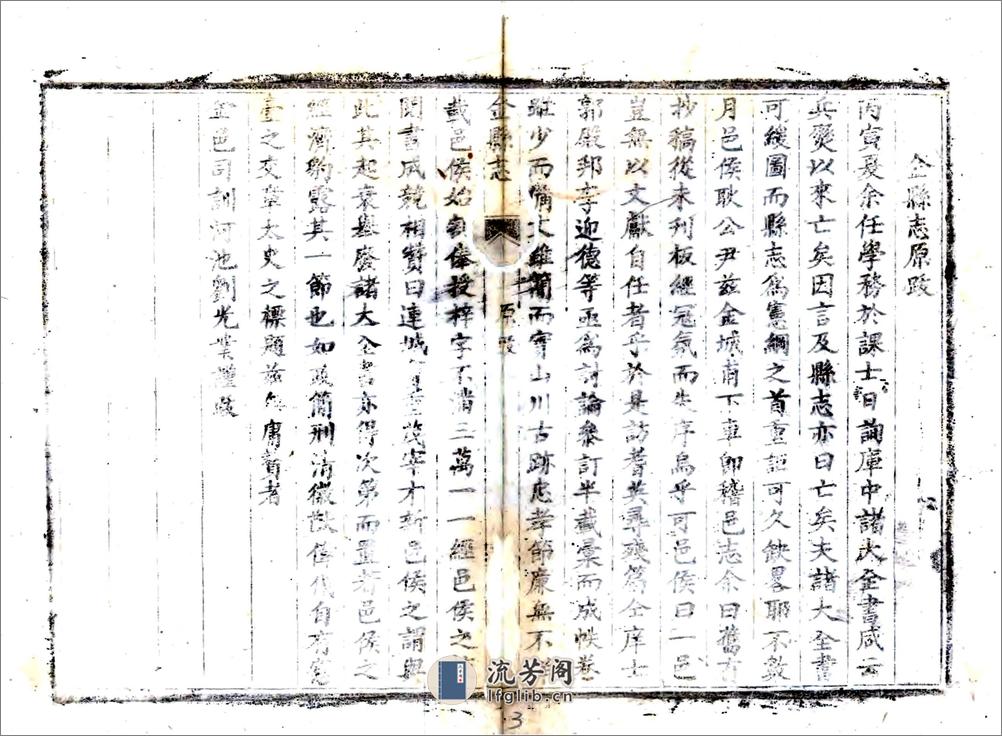 金縣志原跋
丙寅夏余任學務於課士日詢庫中諸大全書咸云
兵燹以來亡矣因言及縣志亦曰亡矣夫諸大全書
可緩圖而縣志爲憲綱之首重詎可久缺畧耶不數
月邑侯耿公尹兹金城甫下車卽稽邑志余曰舊有
抄稿從未刊板經冦氛而失序烏乎可邑侯曰一邑
豈無以文獻自任者乎於是訪耆英尋齊篇全庠士
郭殿邦李迎德等亟爲討論衆訂半載稾而成帙卷
雖少而備文雖簡而實山川古跡忠孝節廉無不
金縣志 原跋
載邑侯始割俸授梓字不滿三萬一一經邑侯之
閱書成競相賛曰連城 茂宰才新邑侯之謂與
此其起衰舉廢諸大全書亦得次第而置者邑侯之
經濟豹露其一節也如政簡刑清徵 自有憲
臺之交章太史之標題兹無庸贅者
金邑司訓河池劉光業禮跋
流芳阁
lfglib.cn
3